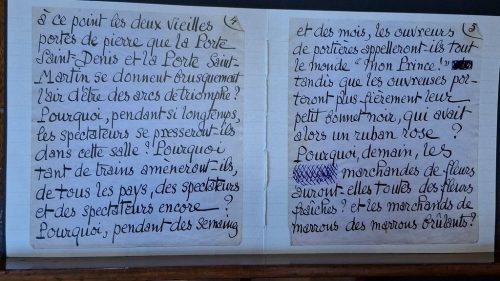 4
à ce point les deux vieilles
portes de pierre que la Porte
Saint-Denis et la Porte Saint-
Martin se donnent brusquement
l'air d'être des arcs de triomphe?
Pourquoi, pendant si longtemps,
les spectateurs se presseront-ils
dans cette salle? Pourquoi
tant de trains amèneront-ils,
de tous les pays, des spectateurs
et des spectateurs encore?
Pourquoi, pendant des semaines
5
et des mois, les ouvreurs
de portières appelleront-ils tout
le monde "mon Prince!"
tandis que les ouvreuses por-
teront plus fièrement leur
petit bonnet noir, qui avait
alors un ruban rose?
Pourquoi, demain, les
marchandes de fleurs
auront-elles toutes des fleurs
fraîches? et les marchands de
marrons des marrons brûlants?